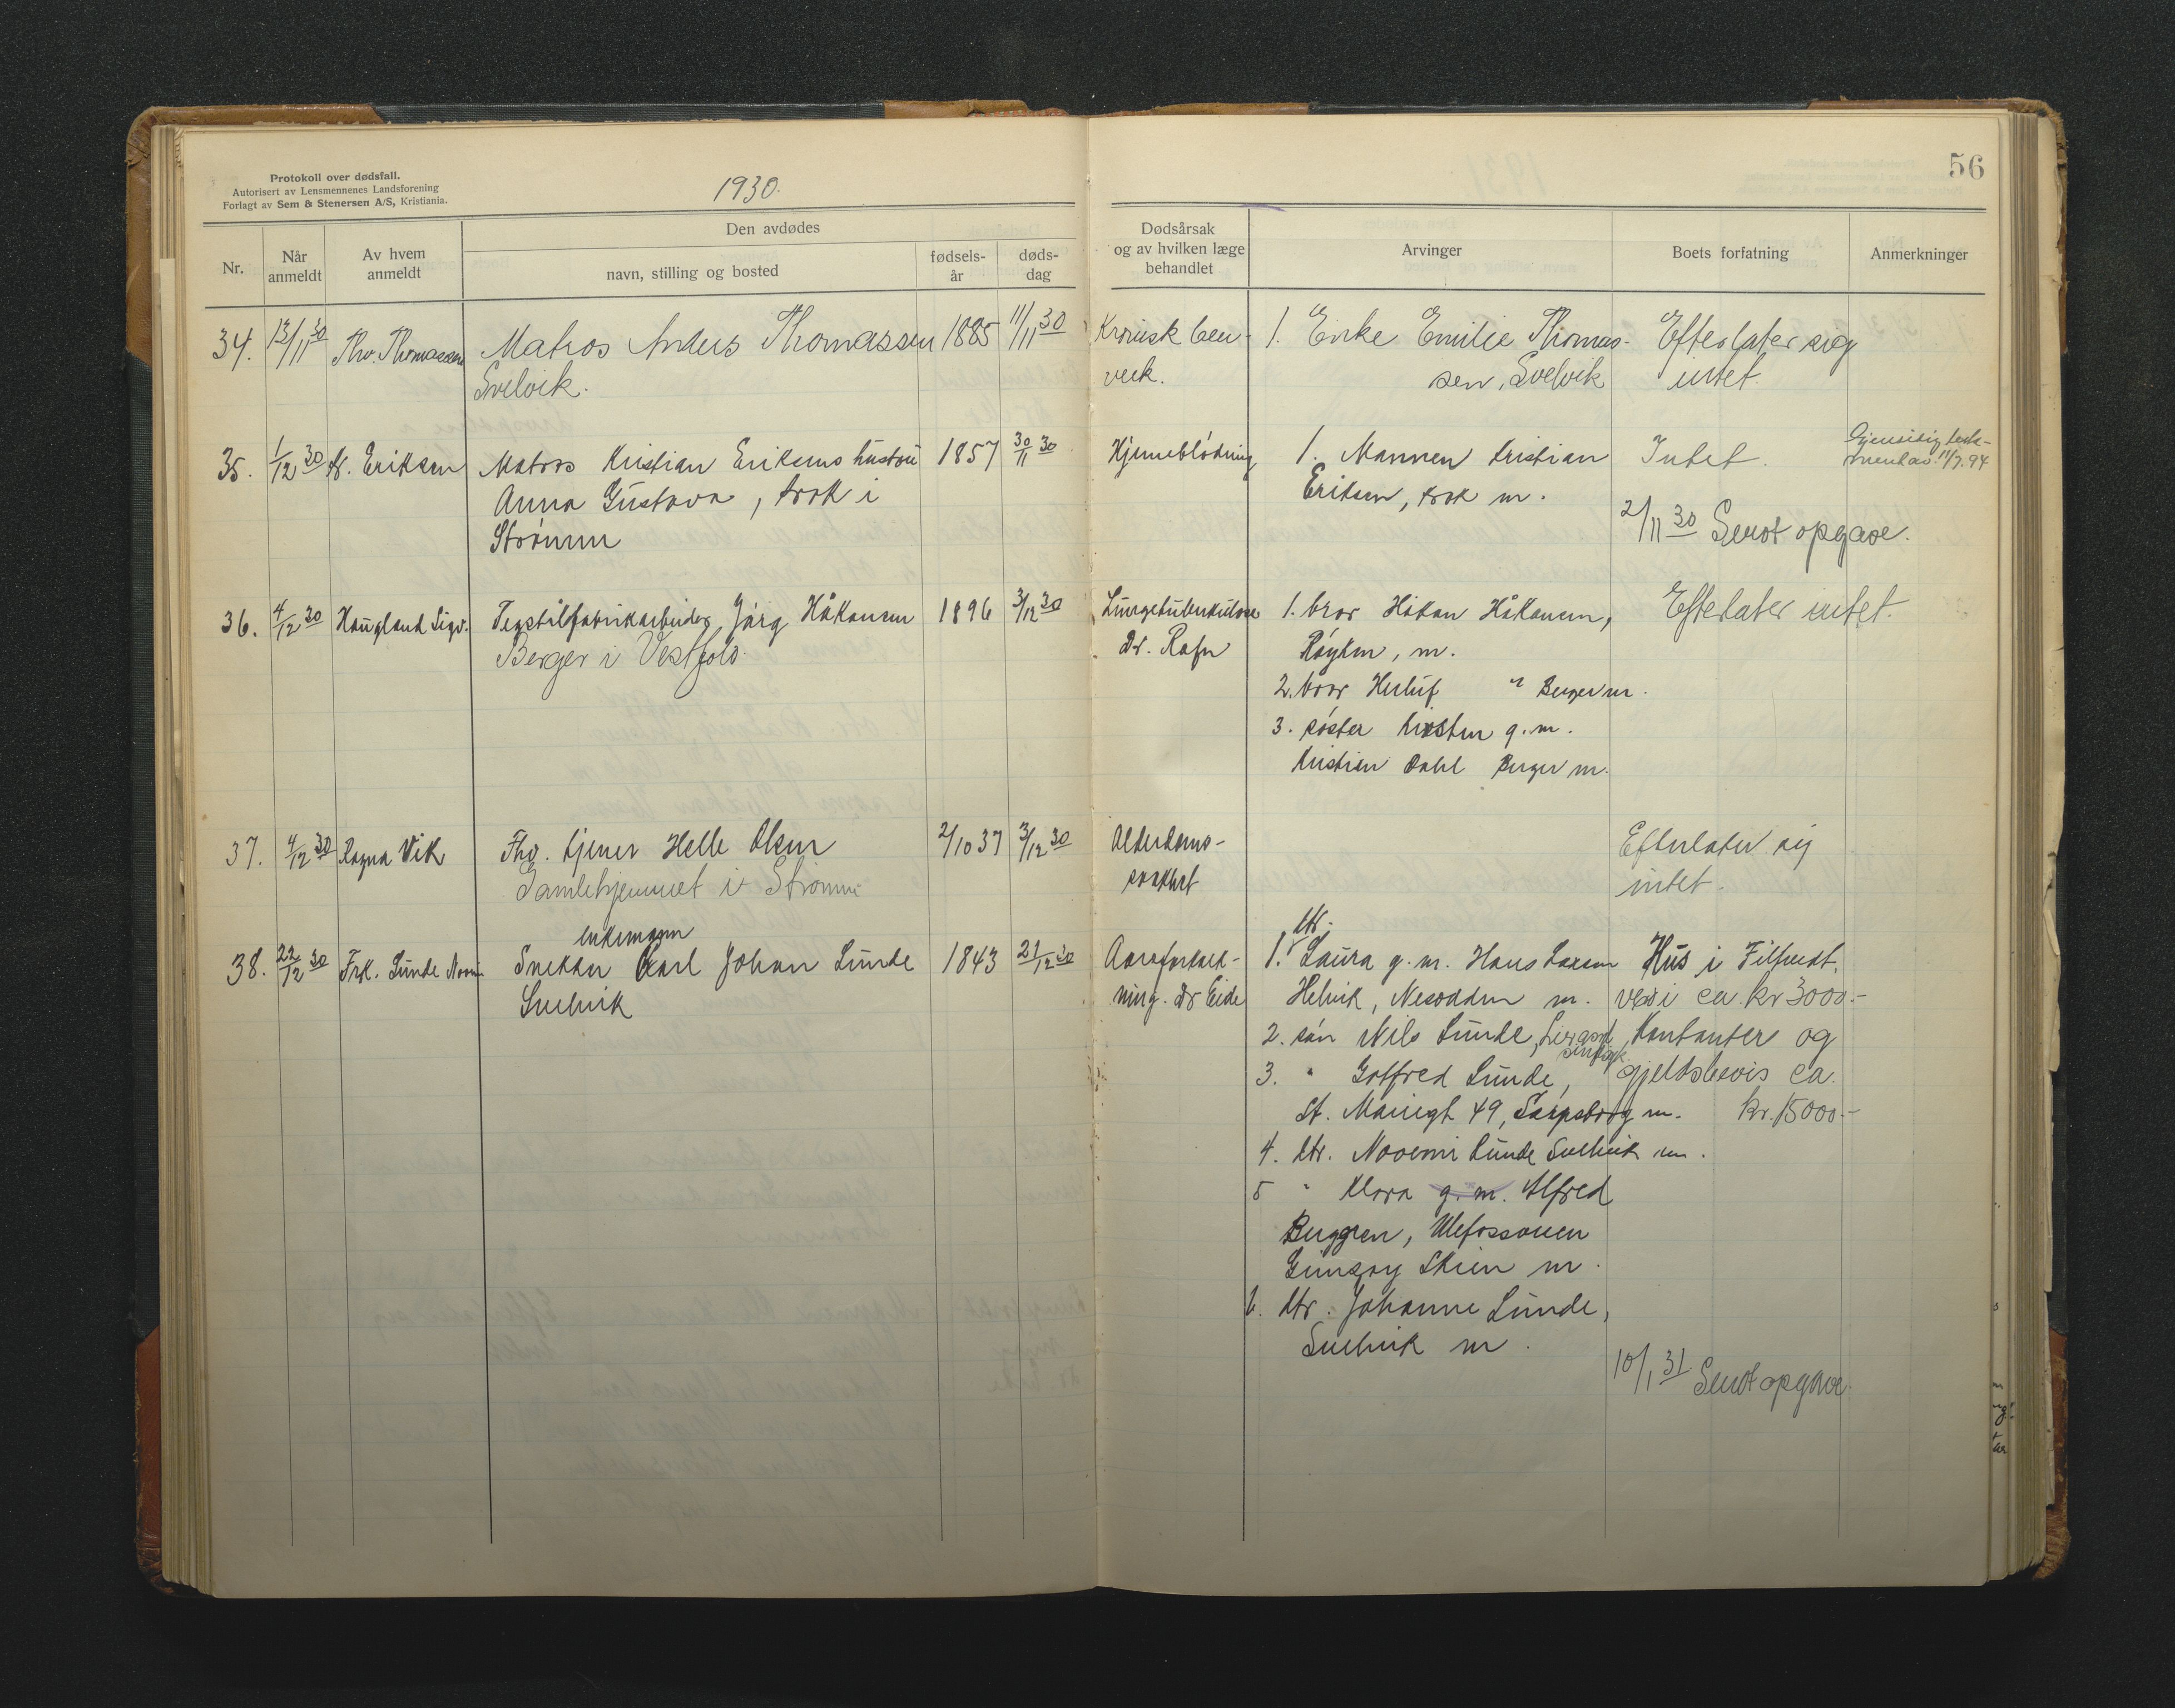 Protokoll over dødsfall.
Autorisert av Lensmennenes Landsforening
Forlagt av Sem & Stenersen A/S, Kristiania.
1930.
56
Nr.
Når anmeldt
Av hvem anmeldt
Den avdødes
navn, stilling og bosted
fødsels-år
døds-dag
Dødsårsak og av hvilken læge behandlet
Arvinger
Boets forfatning
Anmerkninger
34. 13/11 30 Thv. Thomassen Matros Anders Thomassen 1885 11/11 30
Svelvik.
Kronisk ben-
1. Enke Emilie Thomas-
sen, Svelvik
Efterlater sig
intet.
35. 1/12 30 K. Eriksen Matros Kristian Eriksens hustru 1857 30/11 30
Anna Gustava, trok i
Strømm
Hjerneblødning
1. Mannen Kristian
Eriksen, trok m.
Intet.
Gjensidig testa-
ment av 11/7.94
2/11 30 Sendt opgave.
36. 4/12 30 Haugland Sigv. Textilfabrikarbeider Jørg Håkansen 1896 3/12 30
Berger i Vestfold.
Lungetuberkulose
Dr. Rafn
1. bror Håkan Håkansen,
Røyken, m.
2. bror Herluf " Berger m.
3. søster Kirsten g.m.
Kristian Dahl Berger m.
Efterlater intet.
37. 4/12 30 Ragna Vik Fhv. tjener Helle Olsen 2/10 37 3/12 30
Gamlehjemmet i Strømm
Alderdoms-
svakhet
Efterlater sig
intet.
enkemann
38. 22/12 30 Frk. Lunde Noomi Snekker Karl Johan Lunde 1843 21/12 30
Svelvik
Aareforkalk-
ning. Dr Eide
dtr.
1. Laura g.m. Hans Laxsen
Helvik, Nesodden m.
2. søn Nils Lunde, Lersand
3. " Gotfred Lunde,
St. Mariegt 49, Sarpsborg m.
4. dtr. Nooemi Lunde Svelvik m.
5 " Klara g.m. Alfred
Berggren, Ulefossveien
Gimsøy Skien m.
6. dtr. Johanne Lunde,
Svelvik m.
Hus i Filtvedt,
verdi ca kr 3000.-
Kontanter og
gjeldsbevis ca.
kr. 15000.-
10/1 31 Sendt opgave